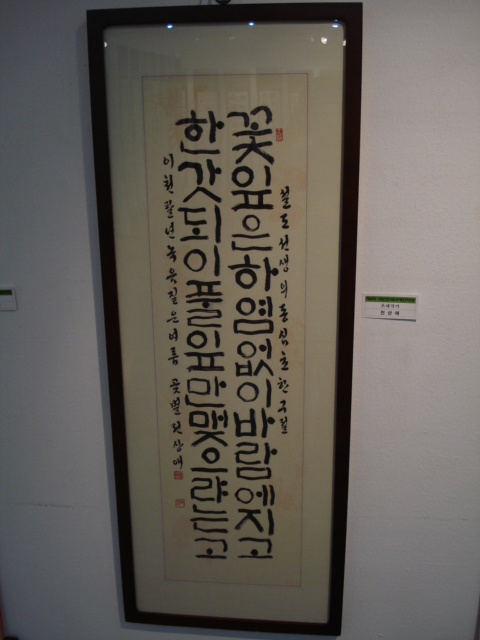 설도선생의동심초한구절
꽃잎은하염없이바람에지고
한갓되이풀잎만맺으랴는고
이천팔년녹음짙은여름 꽃별
초대작가